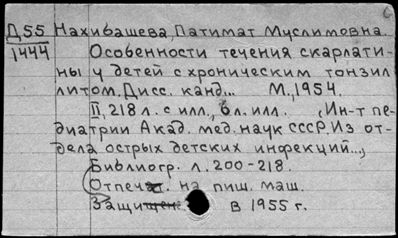 Д55 Нахибашева, Патимат Муслимовна.
1444 Особенности течения скарлати-
ны у детей с хроническим тонзил
литом. Дисс. канд... М., 1954.
II, 218 л. с илл., 6 л. илл. (Ин-т пе-
диатрии Акад. мед. наук СССР. Из от-
дела острых детских инфекций...)
Библиогр. л. 200-218.
Отпечат. на пиш. маш.
Защищена в 1955 г.